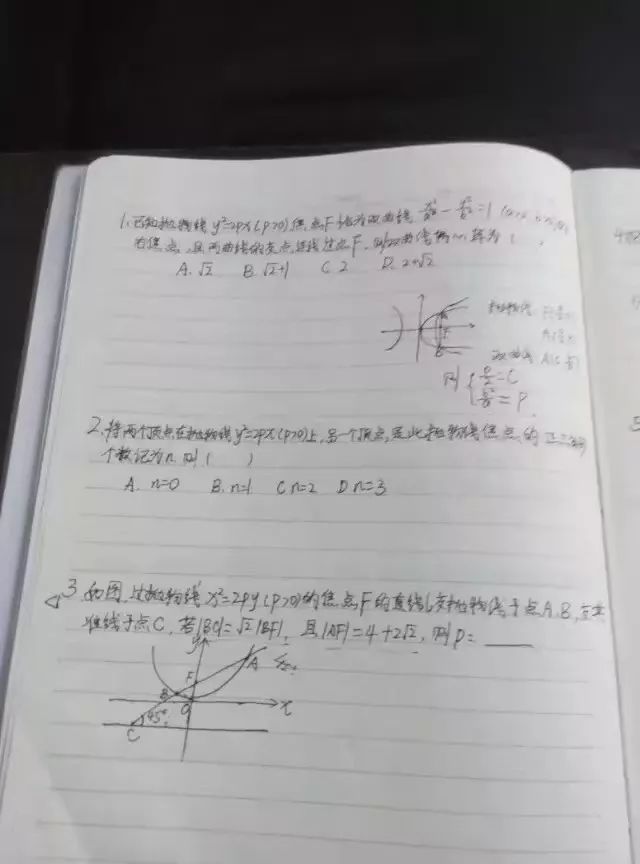 1.已知抛物线 y²=2px(p>0)焦点F恰为双曲线 x²/a² - y²/b² =1
右焦点,且两曲线的交点连线过点F,则双曲线离心率为(
A.√2 B.√2+1 C.2 D.2+√2
抛物线
A(
双曲线 A(C,
则 { p/2=C
b²/a=P.
2.将两个顶点在抛物线y²=2px(p>0)上,另一个顶点,是此抛物线焦点的正三角
个数记为n,则( )
A. n=0 B.n=1 C n=2 D n=3
3.如图,过抛物线 x²=2py(p>0)的焦点F的直线l交抛物线于点A.B,交其
准线于点C,若|BC|=√2|BF|,且|AF|=4+2√2,则p=____
y
A
F
B
O
x
45°
C